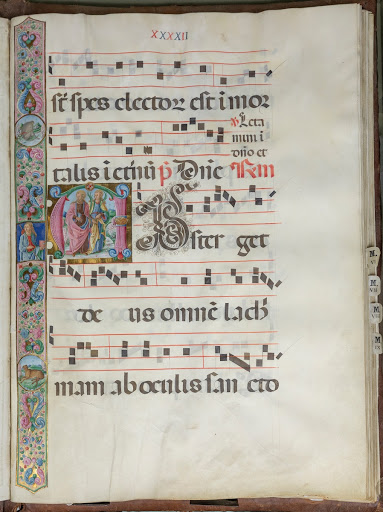 XXXXII
st spes elector est i mor
℣ Leta
mini i
dño et
talis i eternū p Dñe
A Bster get
de us omnē lach
mam ab oculis san cto